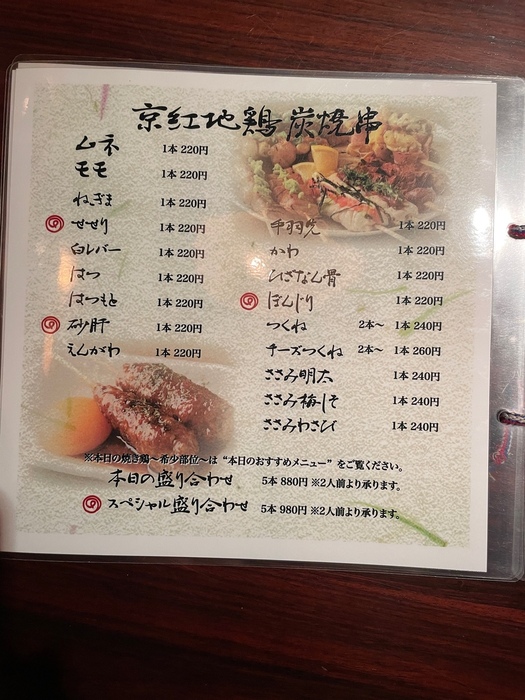 京紅地鶏 炭焼串
ムネ 1本 220円
モモ 1本 220円
ねぎま 1本 220円
せせり 1本 220円
白レバー 1本 220円
はつ 1本 220円
はつもと 1本 220円
砂肝 1本 220円
えんがわ 1本 220円
手羽先 1本 220円
かわ 1本 220円
ひざなん骨 1本 220円
ぼんじり 1本 220円
つくね 2本〜 1本 240円
チーズつくね 2本〜 1本 260円
ささみ明太 1本 240円
ささみ梅しそ 1本 240円
ささみわさび 1本 240円
※本日の焼き鶏〜希少部位〜は“本日のおすすめメニュー”をご覧ください。
本日の盛り合わせ 5本 880円 ※2人前より承ります。
スペシャル盛り合わせ 5本 980円 ※2人前より承ります。